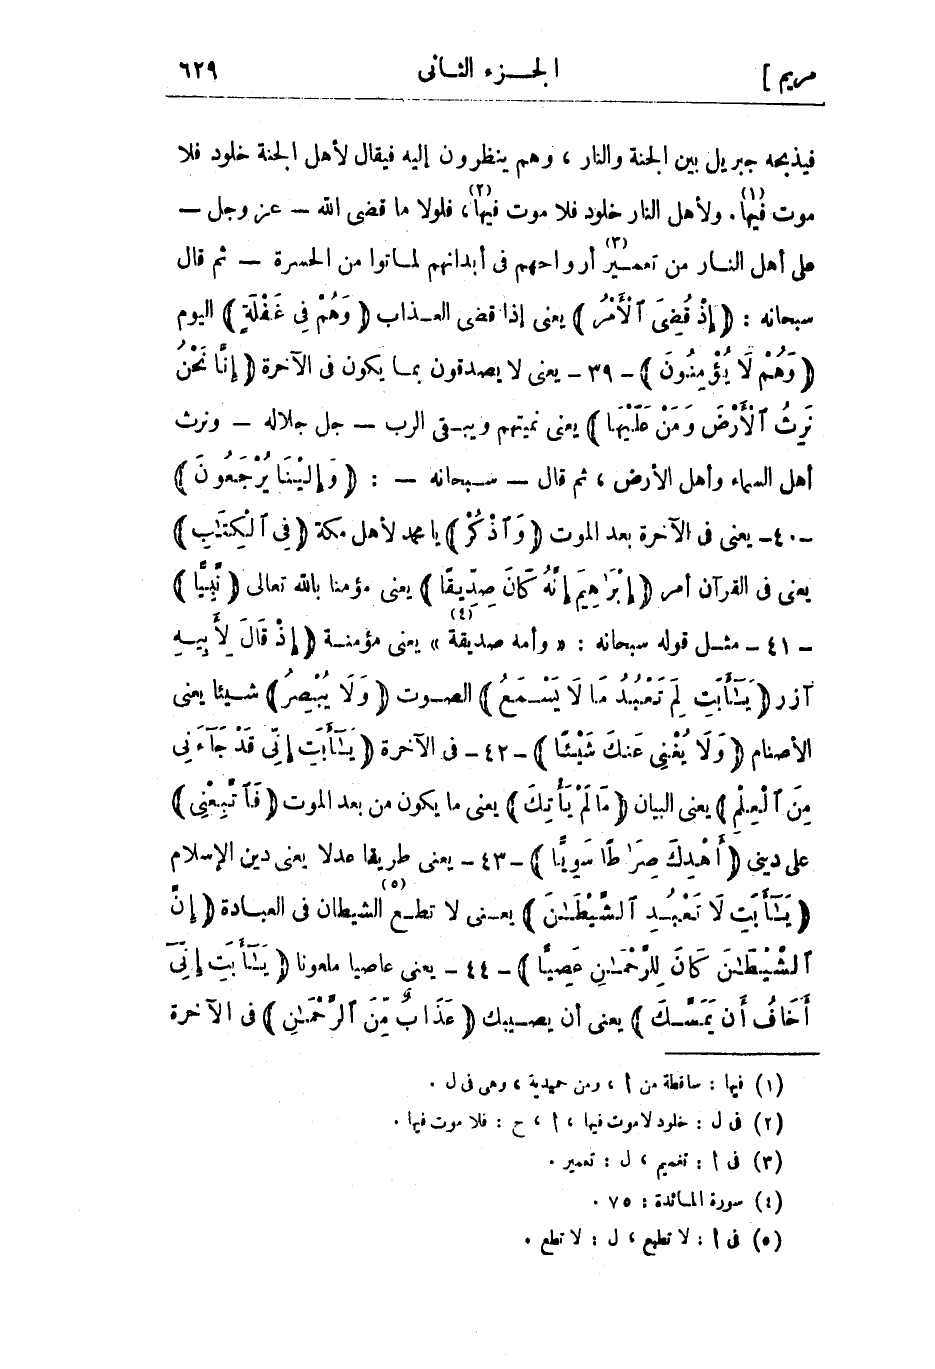 مريم ] الجـزء الثانى ٦٢٩
فيذبحه جبريل بين الجنة والنار ، وهم ينظرون إليه فيقال لأهل الجنة خلود فلا
موت فيها(١). ولأهل النار خلود فلا موت فيها(٢)، فلولا ما قضى الله – عز وجل –
على أهل النـار من تعمـير(٣) أرواحهم فى أبدانهم لمـاتوا من الحسرة – ثم قال
سبحانه : ﴿ إِذْ قُضِىَ ٱلْأَمْرُ ﴾ يعنى إذا قضى العـذاب ﴿ وَهُمْ فِى غَفْلَةٍ ﴾ اليوم
﴿ وَهُمْ لَا يُؤْمِنُونَ ﴾ - ٣٩ - يعنى لا يصدقون بمـا يكون فى الآخرة ﴿ إِنَّا نَحْنُ
نَرِثُ ٱلْأَرْضَ وَمَنْ عَلَيْهَا ﴾ يعنى نميتهم ويبـقى الرب – جل جلاله – ونرث
أهل السماء وأهل الأرض ، ثم قال – سـبحانه – : ﴿ وَإِلَيْنَا يُرْجَعُونَ ﴾
-٤٠- يعنى فى الآخرة بعد الموت ﴿ وَٱذْكُرْ ﴾ يا محمد لأهل مكة ﴿ فِى ٱلْكِتَـٰبِ ﴾
يعنى فى القرآن أمر ﴿ إِبْرَٰهِيمَ إِنَّهُ كَانَ صِدِّيقًا ﴾ يعنى مؤمنا بالله تعالى ﴿ نَّبِيًّا ﴾
- ٤١ - مثـل قوله سبحانه : « وأمه صديقة(٤) » يعنى مؤمنـة ﴿ إِذْ قَالَ لِأَبِيـهِ
آزر ﴿ يَـٰٓأَبَتِ لِمَ تَعْبُـدُ مَا لَا يَسْـمَعُ ﴾ الصـوت ﴿ وَلَا يُبْصِرُ ﴾ شـيئا يعنى
الأصنام ﴿ وَلَا يُغْنِى عَنكَ شَيْئًا ﴾ - ٤٢ - فى الآخرة ﴿ يَـٰٓأَبَتِ إِنِّى قَدْ جَآءَنِى
مِنَ ٱلْعِلْمِ ﴾ يعنى البيان ﴿ مَا لَمْ يَأْتِكَ ﴾ يعنى ما يكون من بعد الموت ﴿ فَٱتَّبِعْنِى ﴾
على دينى ﴿ أَهْدِكَ صِرَٰطًا سَوِيًّا ﴾ - ٤٣ - يعنى طريقا عدلا يعنى دين الإسلام
﴿ يَـٰٓأَبَتِ لَا تَعْبُـدِ ٱلشَّيْطَـٰنَ ﴾ يعـنى لا تطـع(٥) الشيطان فى العبـادة ﴿ إِنَّ
ٱلشَّيْطَـٰنَ كَانَ لِلرَّحْمَـٰنِ عَصِيًّا ﴾ - ٤٤ - يعنى عاصيا ملعونا ﴿ يَـٰٓأَبَتِ إِنِّىٓ
أَخَافُ أَن يَمَسَّـكَ ﴾ يعنى أن يصـيبك ﴿ عَذَابٌ مِّنَ ٱلرَّحْمَـٰنِ ﴾ فى الآخرة
(١) فيها : ساقطة من أ ، ومن حميدية ، وهى فى ل .
(٢) فى ل : خلود لا موت فيها ، أ ، ح : فلا موت فيها .
(٣) فى أ : تغميم ، ل : تعمير .
(٤) سورة المـائدة : ٧٥ .
(٥) فى أ : لا تطيع ، ل : لا تطع .